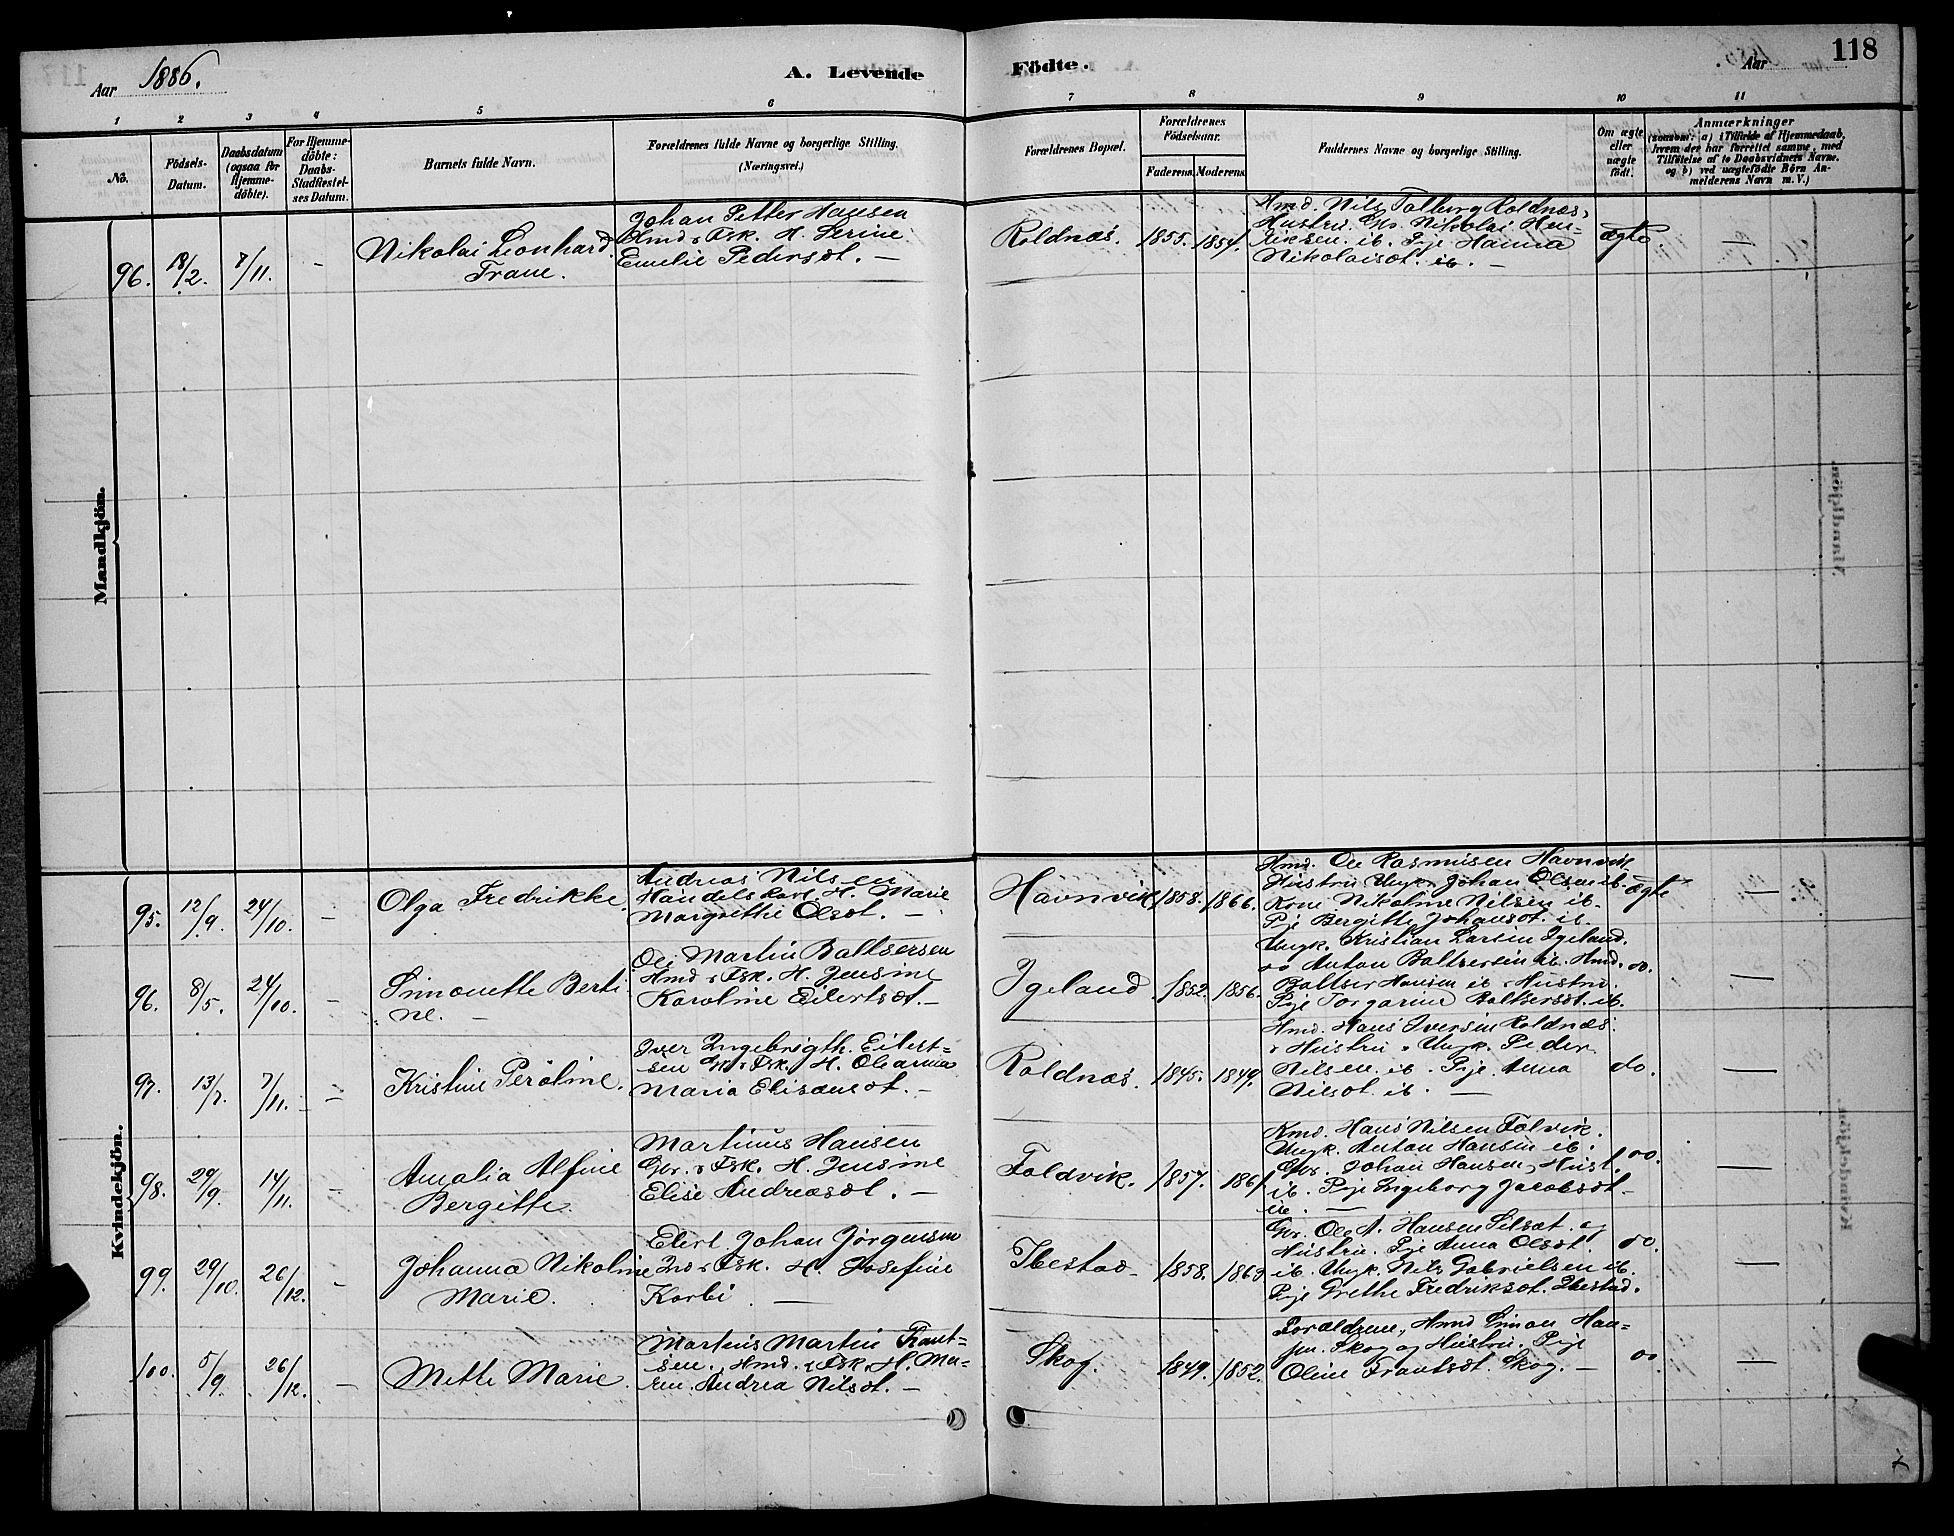 Aar 1886.
A. Levende
Födte.
Aar
118
1 2 3 4 5 6 7 8 9 10 11
No.
Födsels-
Datum.
Daabsdatum
(ogsaa for
Hjemme-
döbte).
For Hjemme-
döbte:
Daabs-
Stadfæstel-
ses Datum.
Barnets fulde Navn.
Forældrenes fulde Navne og borgerlige Stilling.
(Næringsvei.)
Forældrenes Bopæl.
Forældrenes
Födselsaar.
Faderens. Moderens.
Faddernes Navne og borgerlige Stilling.
Om ægte
eller
uægte
født.
Anmærkninger
(saasom: a) i Tilfælde af Hjemmedaab,
hvem der har forrettet samme, med
Tilföielse af to Daabsvidners Navne.
og b) ved uægtefödte Börn An-
melderens Navn m. V.)
Mandkjön.
96. 18/2. 7/11. –
Nikolai Leonhard
Frane.
Johan Petter Hansen
Hmd & Fsk. H. Serine
Emelie Pedersdt. –
Roldnæs. 1855. 1854.
Hmd. Nils Tolberg Roldnæs,
Hustru. Gbr. Nikolai Hen-
riksen. ib. Pje Hanna
Nikolaisdt. ib. –
ægte. –
Kvindekjön.
95. 12/9. 24/10. –
Olga Fredrikke.
Andreas Nilsen
Handelskarl. H. Marie
Margrethe Olsdt. –
Havnvik 1858. 1866.
Hmd. Ole Rasmusen Havnvik
Hustru Ungk. Johan Olsen ib.
Kone Nikoline Nilsen ib.
Pje Bergitte Johansdt. ib.
ægte –
96. 8/5. 24/10. –
Simonette Berti
ne. –
Ole Martin Baltsersen
Hmd & Fsk. H. Jensine
Karoline Eilertsdt. –
Igeland 1852. 1856.
Ungk. Kristian Larsen Igeland.
do Anton Baltsersen ib. Hmd.
Baltser Hansen ib & Hustru.
Pje Torgarine Baltsersdt. ib.
do. –
97. 13/7. 7/11. –
Kristine Peroline.
Iver Ingebrigth. Eilert-
sen Gbr & Fsk. H. Oleanna
Maria Elisæusdt. –
Roldnæs. 1845. 1849.
Hmd. Hans Iversen Roldnæs.
& Hustru & Ungk. Peder
Nilsen. ib. Pje. Anna
Nilsdt. ib. –
do. –
98. 29/9. 14/11. –
Amalia Alfine
Bergitte.
Martinus Hansen
Gbr. & Fsk. H. Jensine
Elise Andreasdt. –
Foldvik. 1857. 1861.
Hmd. Hans Nilsen Folvik.
Ungk. Anton Hansen ib.
Gbr. Johan Hansen, Hust.
ib. Pje Ingeborg Jacobsdt
ib. –
do. –
99. 29/10. 26/12. –
Johanna Nikoline
Marie.
Elert Johan Jørgensen
Ind & Fsk. H. Josefine
Korbi. –
Ibestad 1858. 1863
Gbr. Ole A. Hansen Silsæt. og
Hustru. Pje Anna Olsdt.
ib. Ungk. Nils Gabrielsen ib.
Pje Grethe Fredriksdt. Ibestad.
do. –
100. 5/9. 26/12. –
Mette Marie.
Martinus Martin Frant-
sen. Hmd. & Fsk. H. Ma-
ren Andrea Nilsdt. –
Skog. 1849. 1852.
Forældrene, Hmd Simon Han-
sen. Skog og Hustru. Pje
Oline Frantsdt. Skog. –
do –